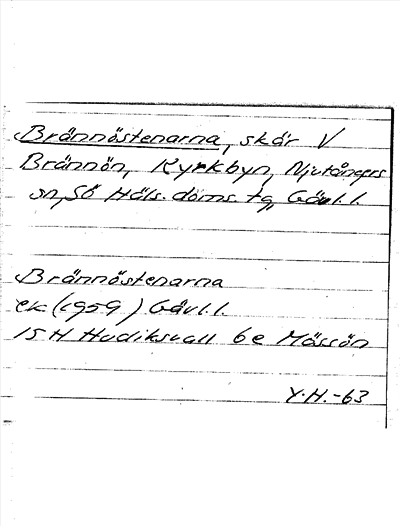 Brännöstenarna, skär V
Brännön, Kyrkbyn, Njutångers
sn, SÖ Häls. doms. tg, Gävl. l.
Brännöstenarna
ek (1959) Gävl. l.
15 H Hudiksvall 6e Mössön
Y.H.-63